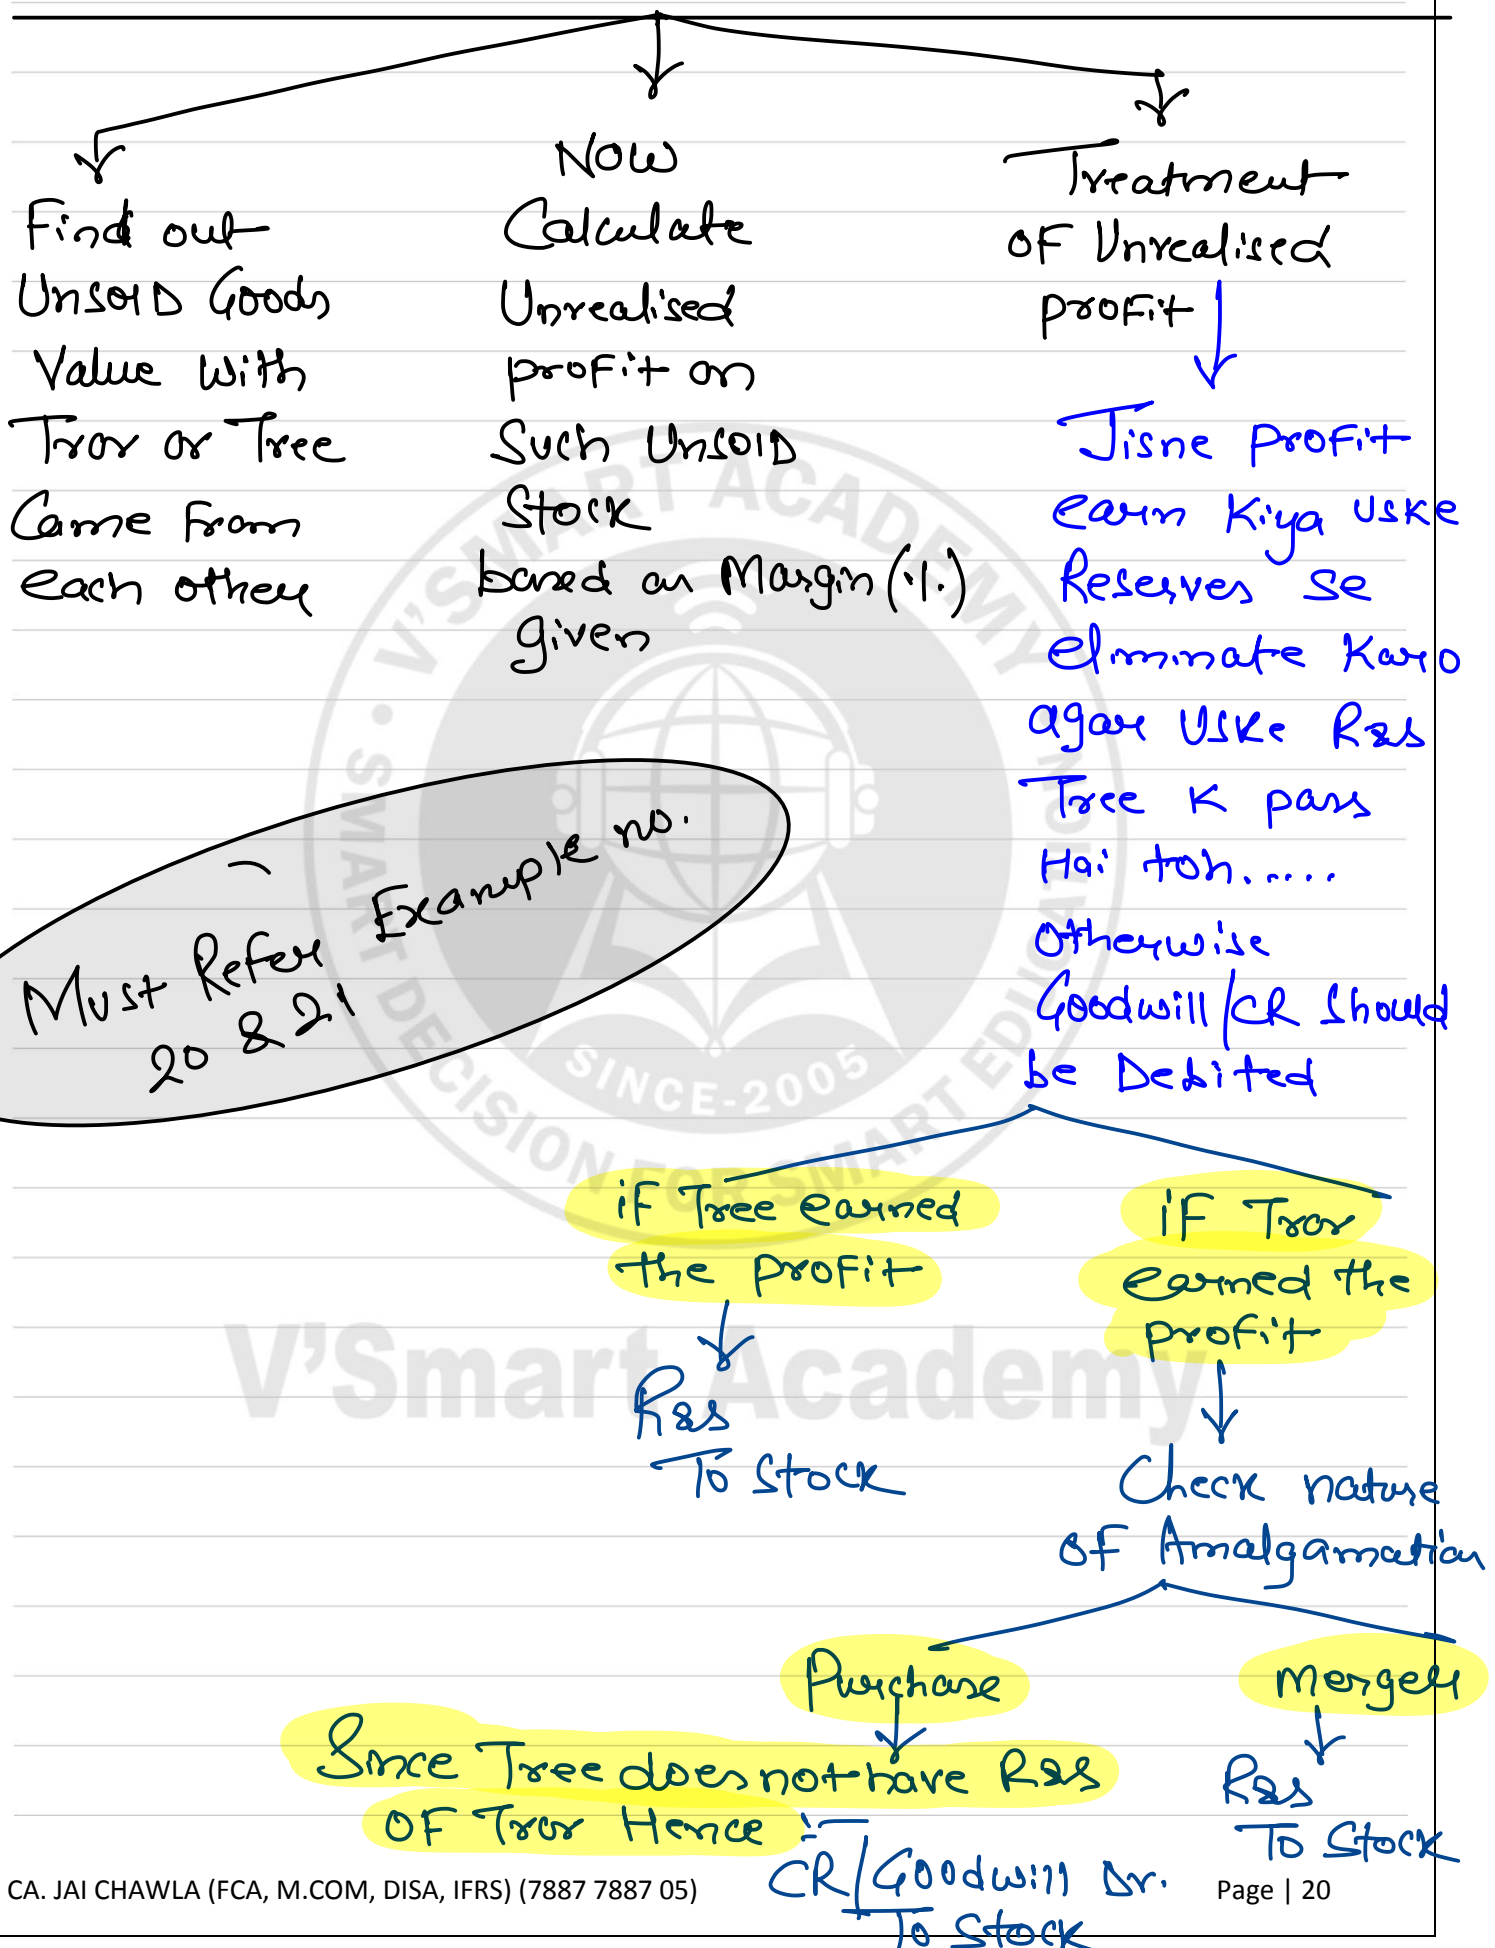 Find out
Unsold Goods
Value With
Tror or Tree
Came From
each other
Now
Calculate
Unrealised
profit on
Such Unsold
Stock
based on Margin (%)
given
Treatment
of Unrealised
profit
Jisne Profit
earn Kiya Uske
Reserves se
eliminate Karo
agar Uske R&S
Tree K pass
Hai toh.....
Otherwise
Goodwill/CR Should
be Debited
Must Refer Example no.
20 & 21
if Tree earned
the profit
R&S
To Stock
if Tror
earned the
profit
Check nature
of Amalgamation
Purchase
Since Tree does not have R&S
of Tror Hence :-
CR/Goodwill Dr.
To Stock
Merger
R&S
To Stock
V'SMART ACADEMY
SMART DECISION FOR SMART EDUCATION
SINCE-2005
V'Smart Academy
CA. JAI CHAWLA (FCA, M.COM, DISA, IFRS) (7887 7887 05)
Page | 20